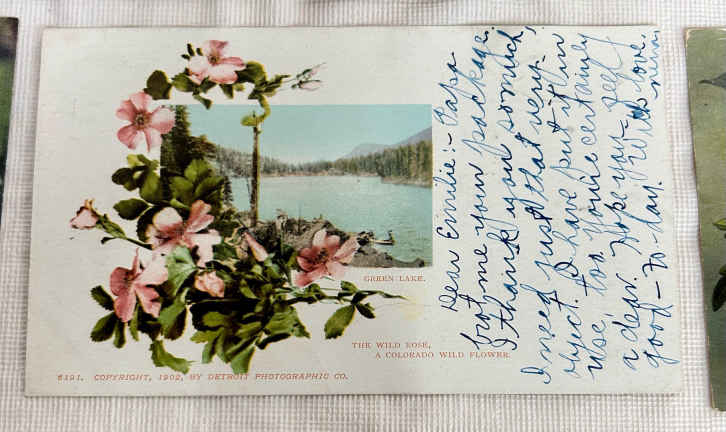 GREEN LAKE.
THE WILD ROSE,
A COLORADO WILD FLOWER.
6191. COPYRIGHT, 1902, BY DETROIT PHOTOGRAPHIC CO.
Dear Emilie:- Papa
brot me your package.
I thank you so much,
I need just that very
object. I have put it in
use too. You're certainly
a dear. Hope you feel
good - to-day. With love.